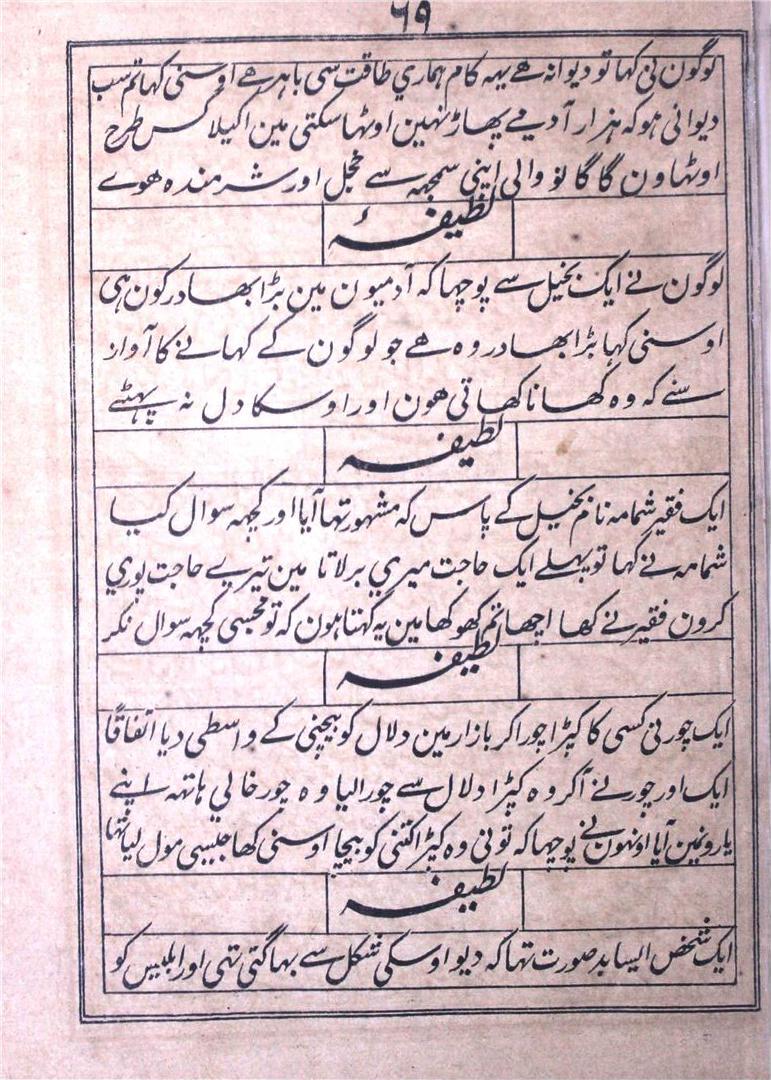 ۶۹
لوگون نی کہا تو دیوانہ ھے یہہ کام ہماری طاقت سی باہر ھے اوسنی کہا تم سب
دیوانی ہو کہ ہزار آدمے پھاڑ نہین اوٹہا سکتی مین اکیلا کس طرح
اوٹہاون گا گانو والی اپنی سمجہہ سے خجل اور شرمندہ ھوے
لطیفہٴ
لوگون نے ایک بخیل سے پوچہا کہ آدمیون مین بڑا بھادر کون ہی
اوسنی کہا بڑا بھادر وہ ھے جو لوگون کے کھانے کا آواز
سنے کہ وہ کھانا کھاتی ھون اور اوسکا دل نہ پہٹے
لطیفہ
ایک فقیر شمامہ نام بخیل کے پاس کہ مشہور تہا آیا اور کچہہ سوال کیا
شمامہ نے کہا تو پہلے ایک حاجت میری بر لا تا مین تیرے حاجت پوری
کرون فقیر نے کھا اچھا تم کھو کھا مین یہ کہتا ہون کہ تو مجسی کچہہ سوال نکر
لطیفہ
ایک چور نی کسی کا کپڑا چورا کر بازار مین دلال کو بیچنی کے واسطی دیا اتفاقًا
ایک اور چور نے آکر وہ کپڑا دلال سے چورا لیا وہ چور خالی ہاتہہ اپنے
یارونمین آیا اونہون نے پوچہا کہ تونی وہ کپڑا کتنی کو بیچا اوسنی کھا جیسی مول لیا تہا
لطیفہ
ایک شخص ایسا بد صورت تہا کہ دیو اوسکی شکل سے بہاگتی تہی اور ابلیس کو